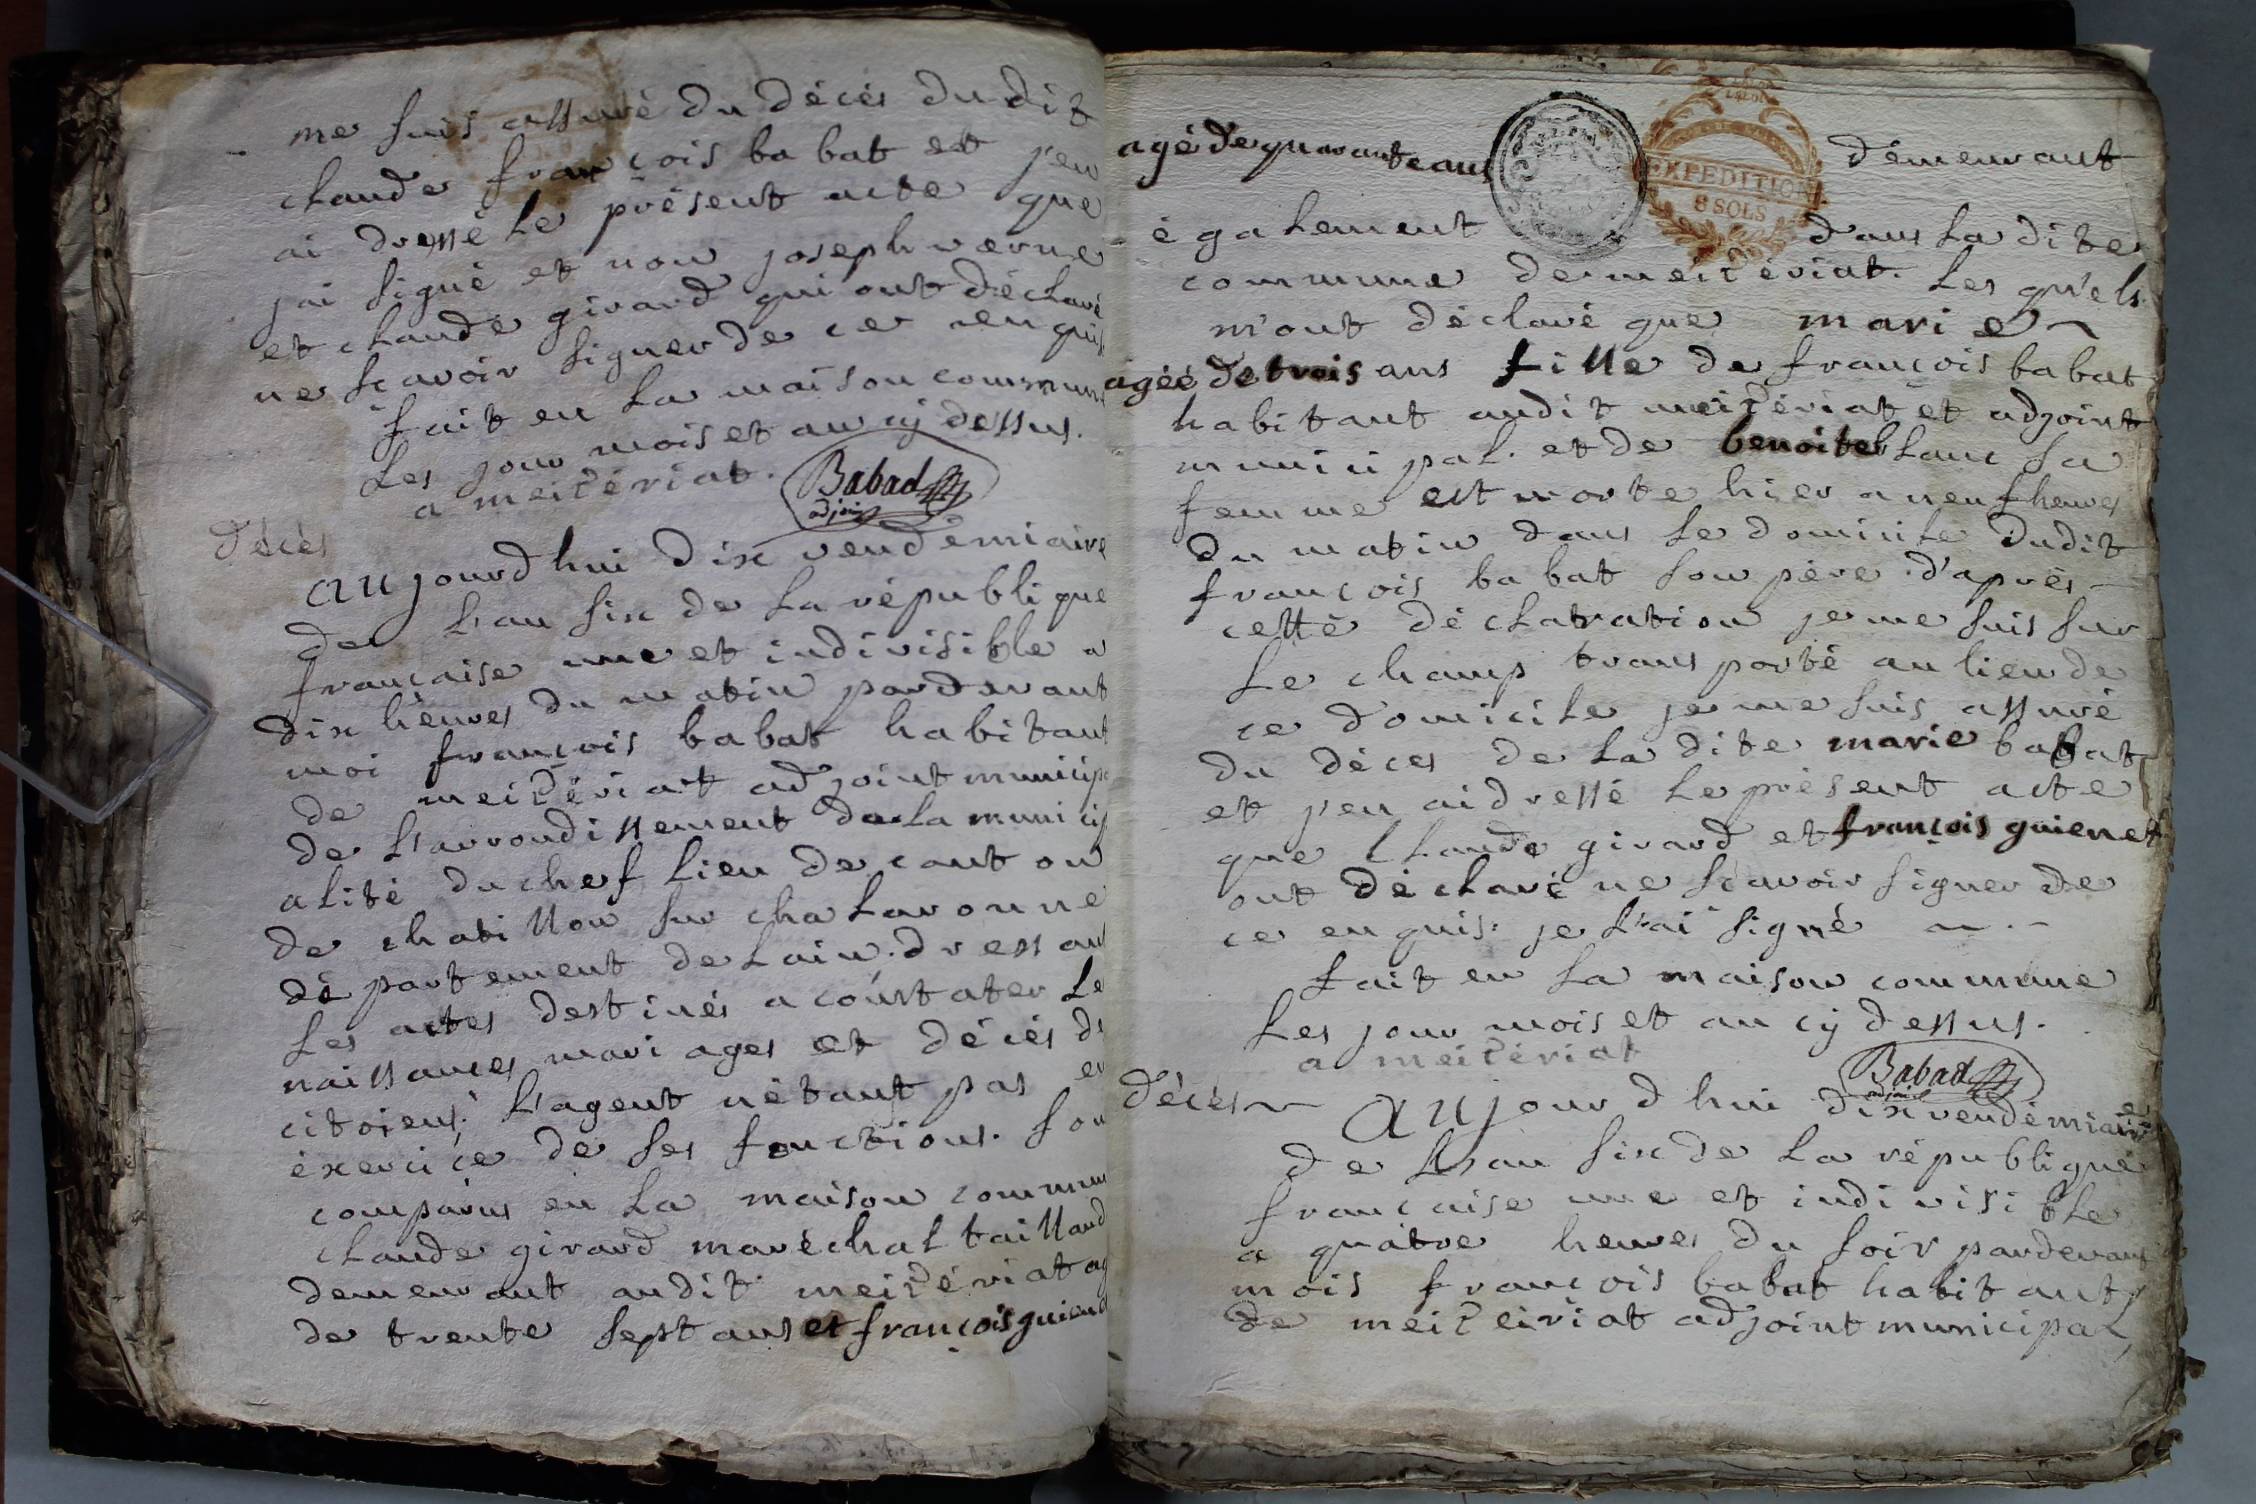 me suis assuré du décés du dit
claude françois babat et j'en
ai dressé le présent acte que
jai signé et non joseph verne
et claude girard qui ont déclaré
ne sçavoir signer de ce enquis
fait en la maison commune
les jour mois et an cÿ dessus.
a meizériat.
Babad
adjoint
décès
aujourdhui dix vendémiaire
de l'an six de la république
française une et indivisible a
dix héures du matin pardevant
moi françois babat habitant
de meizériat adjoint municip
de l'arrondissement de la munici
alité du chef lieu de canton
de chatillon sur chalaronne
département de lain. dressant
les actes destinés a constater le
naissances mariages et décés de
citoiens. l'agent n'étant pas en
éxercice de ses fonctions. son
comparus en la maison commun
claude girard maréchal tailland
demeurant audit meizériat ag
de trente sept ans et françois guienet
agé de quarante ans
EXPEDITION
8 SOLS
démeurant
également dans la dite
commune de meizériat. les quels
m'ont déclaré que marie ~
agéé de trois ans fille de françois babat
habitant audit meizériat et adjoint
municipal. et de benoite blanc sa
femme est morte hier a neuf heures
du matin dans le domicile dudit
françois babat son père. d'aprés -
cette déclaration je me suis sur
le champ transporté au lieu de
ce domicile je me suis assuré
du déces de la dite marie babat
et j'en ai dressé le présent acte
que claude girard et françois guienet
ont déclaré ne sçavoir signer de
ce enquis: je l'ai signé ~ . -
fait en la maison commune
les jour mois et an cÿ dessus.
a meizériat
Babad
adjoint
décés ~
aujourdhui dix vendémiaire
de l'an six de la république
française une et indivisible
a quatre heures du soir pardevant
mois françois babat habitant
de meizeiriat adjoint municipal,